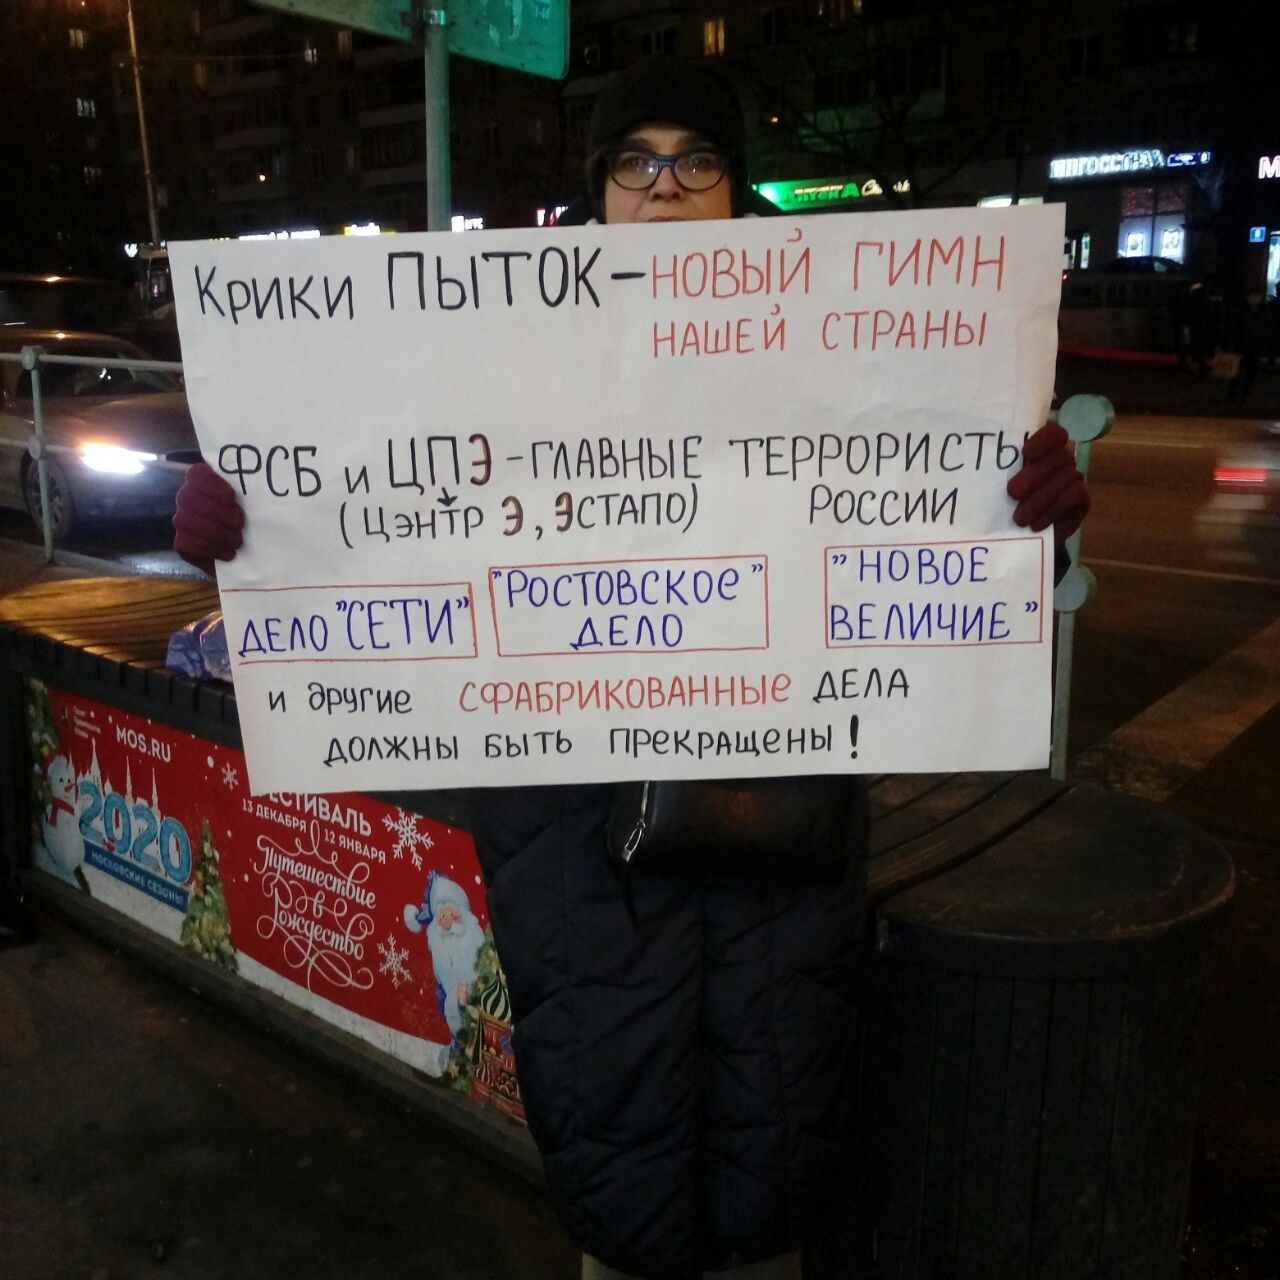 АПТЕКА
ИНГОССТРАХ
М
Крики ПЫТОК – НОВЫЙ ГИМН
НАШЕЙ СТРАНЫ
ФСБ и ЦПЭ - ГЛАВНЫЕ ТЕРРОРИСТЫ
(ЦЭНТР Э, ЭСТАПО) РОССИИ
ДЕЛО "СЕТИ"
"РОСТОВСКОЕ"
ДЕЛО
"НОВОЕ
ВЕЛИЧИЕ"
и другие СФАБРИКОВАННЫЕ ДЕЛА
ДОЛЖНЫ БЫТЬ ПРЕКРАЩЕНЫ!
MOS.RU
2020
МОСКОВСКИЕ СЕЗОНЫ
ЕСТИВАЛЬ
13 ДЕКАБРЯ 12 ЯНВАРЯ
Путешествие
в
Рождество